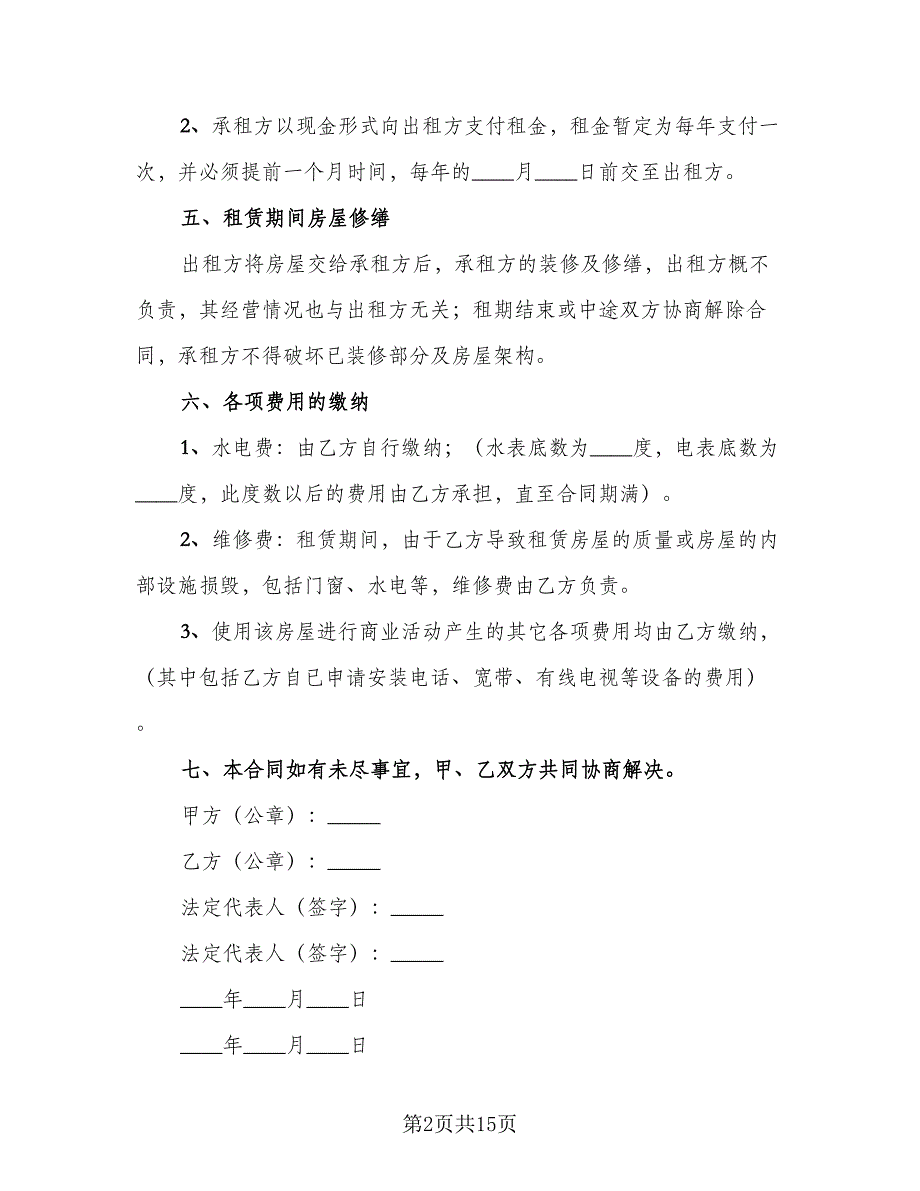 2、承租方以现金形式向出租方支付租金，租金暂定为每年支付一
次，并必须提前一个月时间，每年的____月____日前交至出租方。
五、租赁期间房屋修缮
出租方将房屋交给承租方后，承租方的装修及修缮，出租方概不
负责，其经营情况也与出租方无关；租期结束或中途双方协商解除合
同，承租方不得破坏已装修部分及房屋架构。
六、各项费用的缴纳
1、水电费：由乙方自行缴纳；（水表底数为____度，电表底数为
____度，此度数以后的费用由乙方承担，直至合同期满）。
2、维修费：租赁期间，由于乙方导致租赁房屋的质量或房屋的内
部设施损毁，包括门窗、水电等，维修费由乙方负责。
3、使用该房屋进行商业活动产生的其它各项费用均由乙方缴纳，
（其中包括乙方自已申请安装电话、宽带、有线电视等设备的费用）
。
七、本合同如有未尽事宜，甲、乙双方共同协商解决。
甲方（公章）：_____
乙方（公章）：_____
法定代表人（签字）：_____
法定代表人（签字）：_____
____年____月____日
____年____月____日
第2页共15页